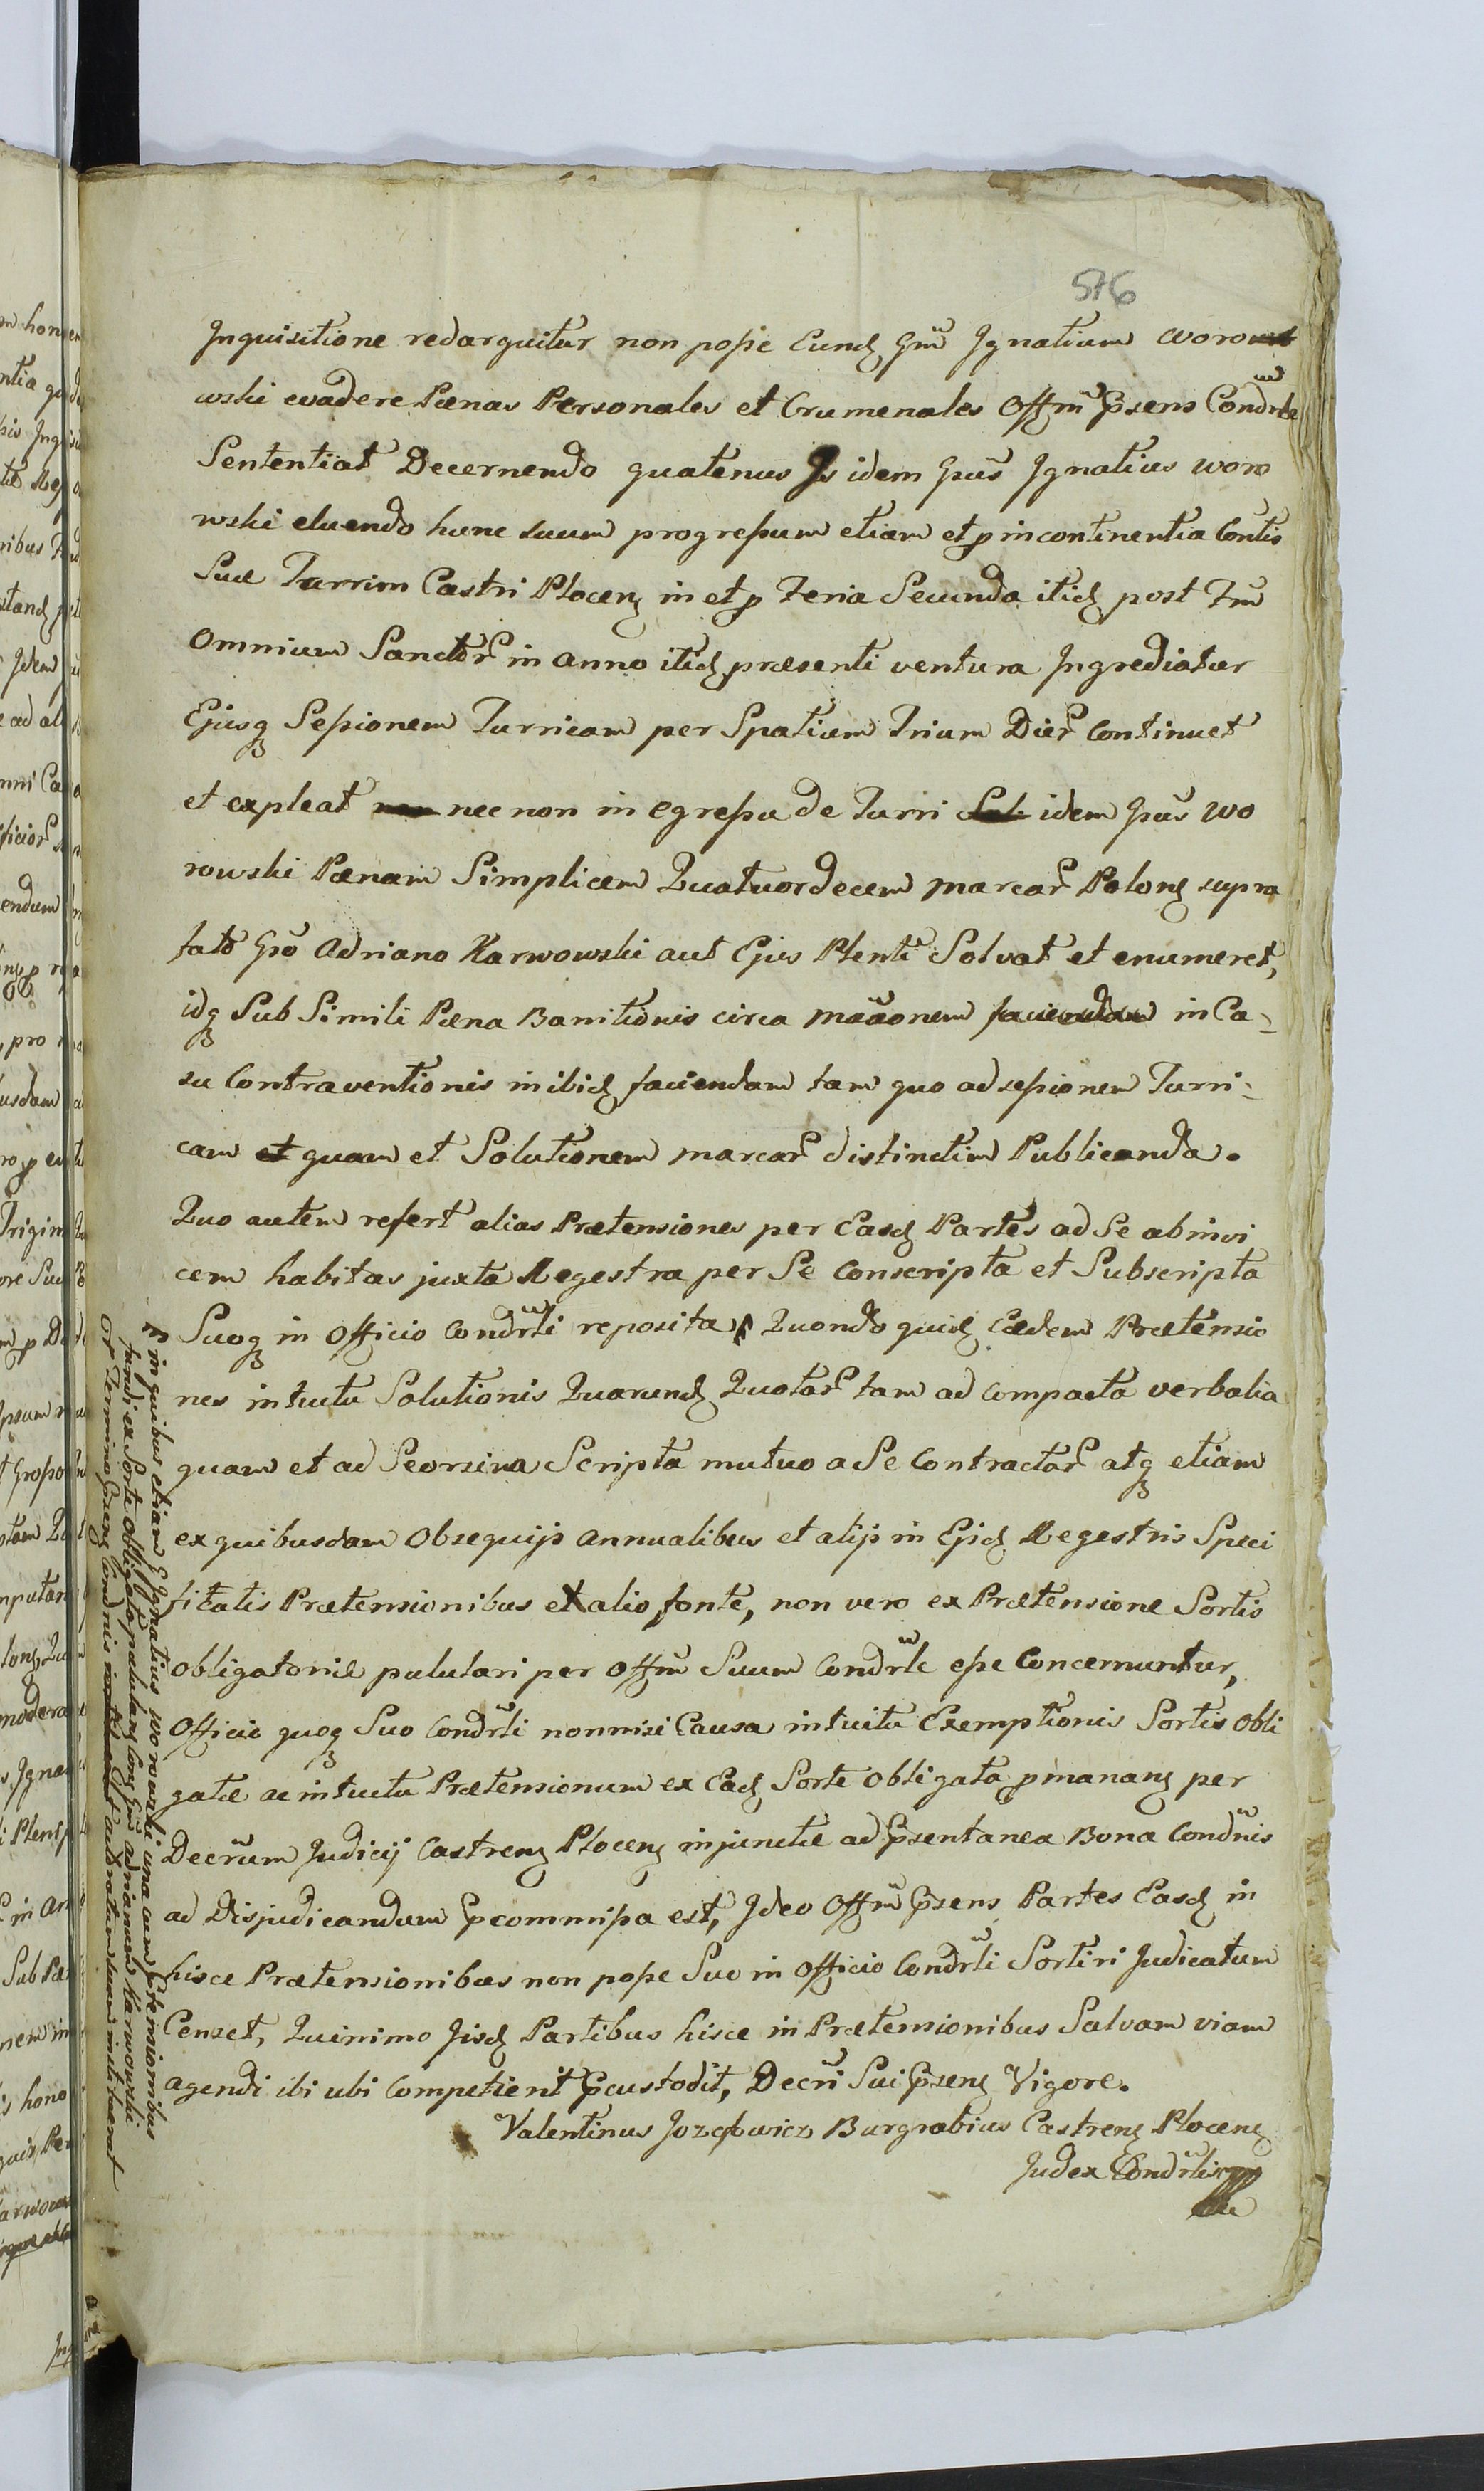 576
Inquisitione redarguitur non posse Eund Gnm Ignatium Woro
wski evadere Pænas Personales et Crumenales Offm Psens Condrle
Sententiat Decernendo quatenus Is idem Gnus Ignatius Woro
wski eluendo hunc suum progressum etiam et p incontinentia Contis
Suæ Turrim Castri Plocens in et p Feria Secunda itid post Fm
Omnium Sanctor in anno itid præsenti ventura Ingrediatur
Ejusq Sessionem Turricam per Spatium Trium Dier Continuet
et expleat nec non in egressu de Turri idem Gnus Wo
rowski Pænam Simplicem Quatuordecem marcar Polong supra
fato Gno Adriano Karwowski aut Ejus Plenti Solvat et enumeret,
idq Sub Simili Pæna Banitionis circa mãaonem faciendam in Ca-
su Contraventionis inibid faciendam tam quo ad sessionem Turri-
cam et quam et Solutionem marcar distinctim Publicanda.
Quo autem refert alias Prætensiones per Easd Partes ad Se abinvi
cem habitas juxta Regestra per Se Conscripta et Subscripta
Suoq in Officio Condrli reposita Quando quid Eædem Prætensio
nes intuitu Solutionis Quarund Quotar tam ad compacta verbalia
quam et ad Seorsiva Scripta mutuo a Se Contractar atq etiam
ex quibusdam Obsequijs annualibus et alijs in Ejsd Regestris Speci
ficatis Prætensionibus et alio fonte, non vero ex Prætensione Sortis
obligatoriæ pululari per Offm Suum Condrle esse Concernuntur,
Officio quoq Suo Condrli nonnisi Causa intuitu Exemptionis Sortis obli
gatæ ac intuitu Prætensionum ex Ead Sorte obligata pmanang per
Decrum Judicij Castreng Ploceng injunctæ ad Psentanea Bona Condnis
ad Disjudicandum Pcommissa est, Ideo Offm Psens Partes Easd in
hisce Prætensionibus non posse Suo in Officio Condrli Sortiri Judicatum
Censet, Quinimo Jisd Partibus hisce in Prætensionibus Salvam viam
agendi ibi ubi Competierit Pcustodit, Decri Sui Pseng Vigore.
Valentinus Jozefowicz Burgrabius Castreng Ploceng
Judex Condrlis
in quibus etiam G Ignatius Worowski una cum Ptensionibus
fundi ex Sorte Obligata pululang Cong Gnum Adrianum Karwowski
or Termino Pseng Condnis